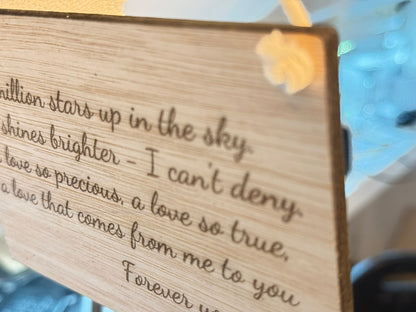 million stars up in the sky.
shines brighter - I can't deny.
love so precious, a love so true,
a love that comes from me to you
Forever